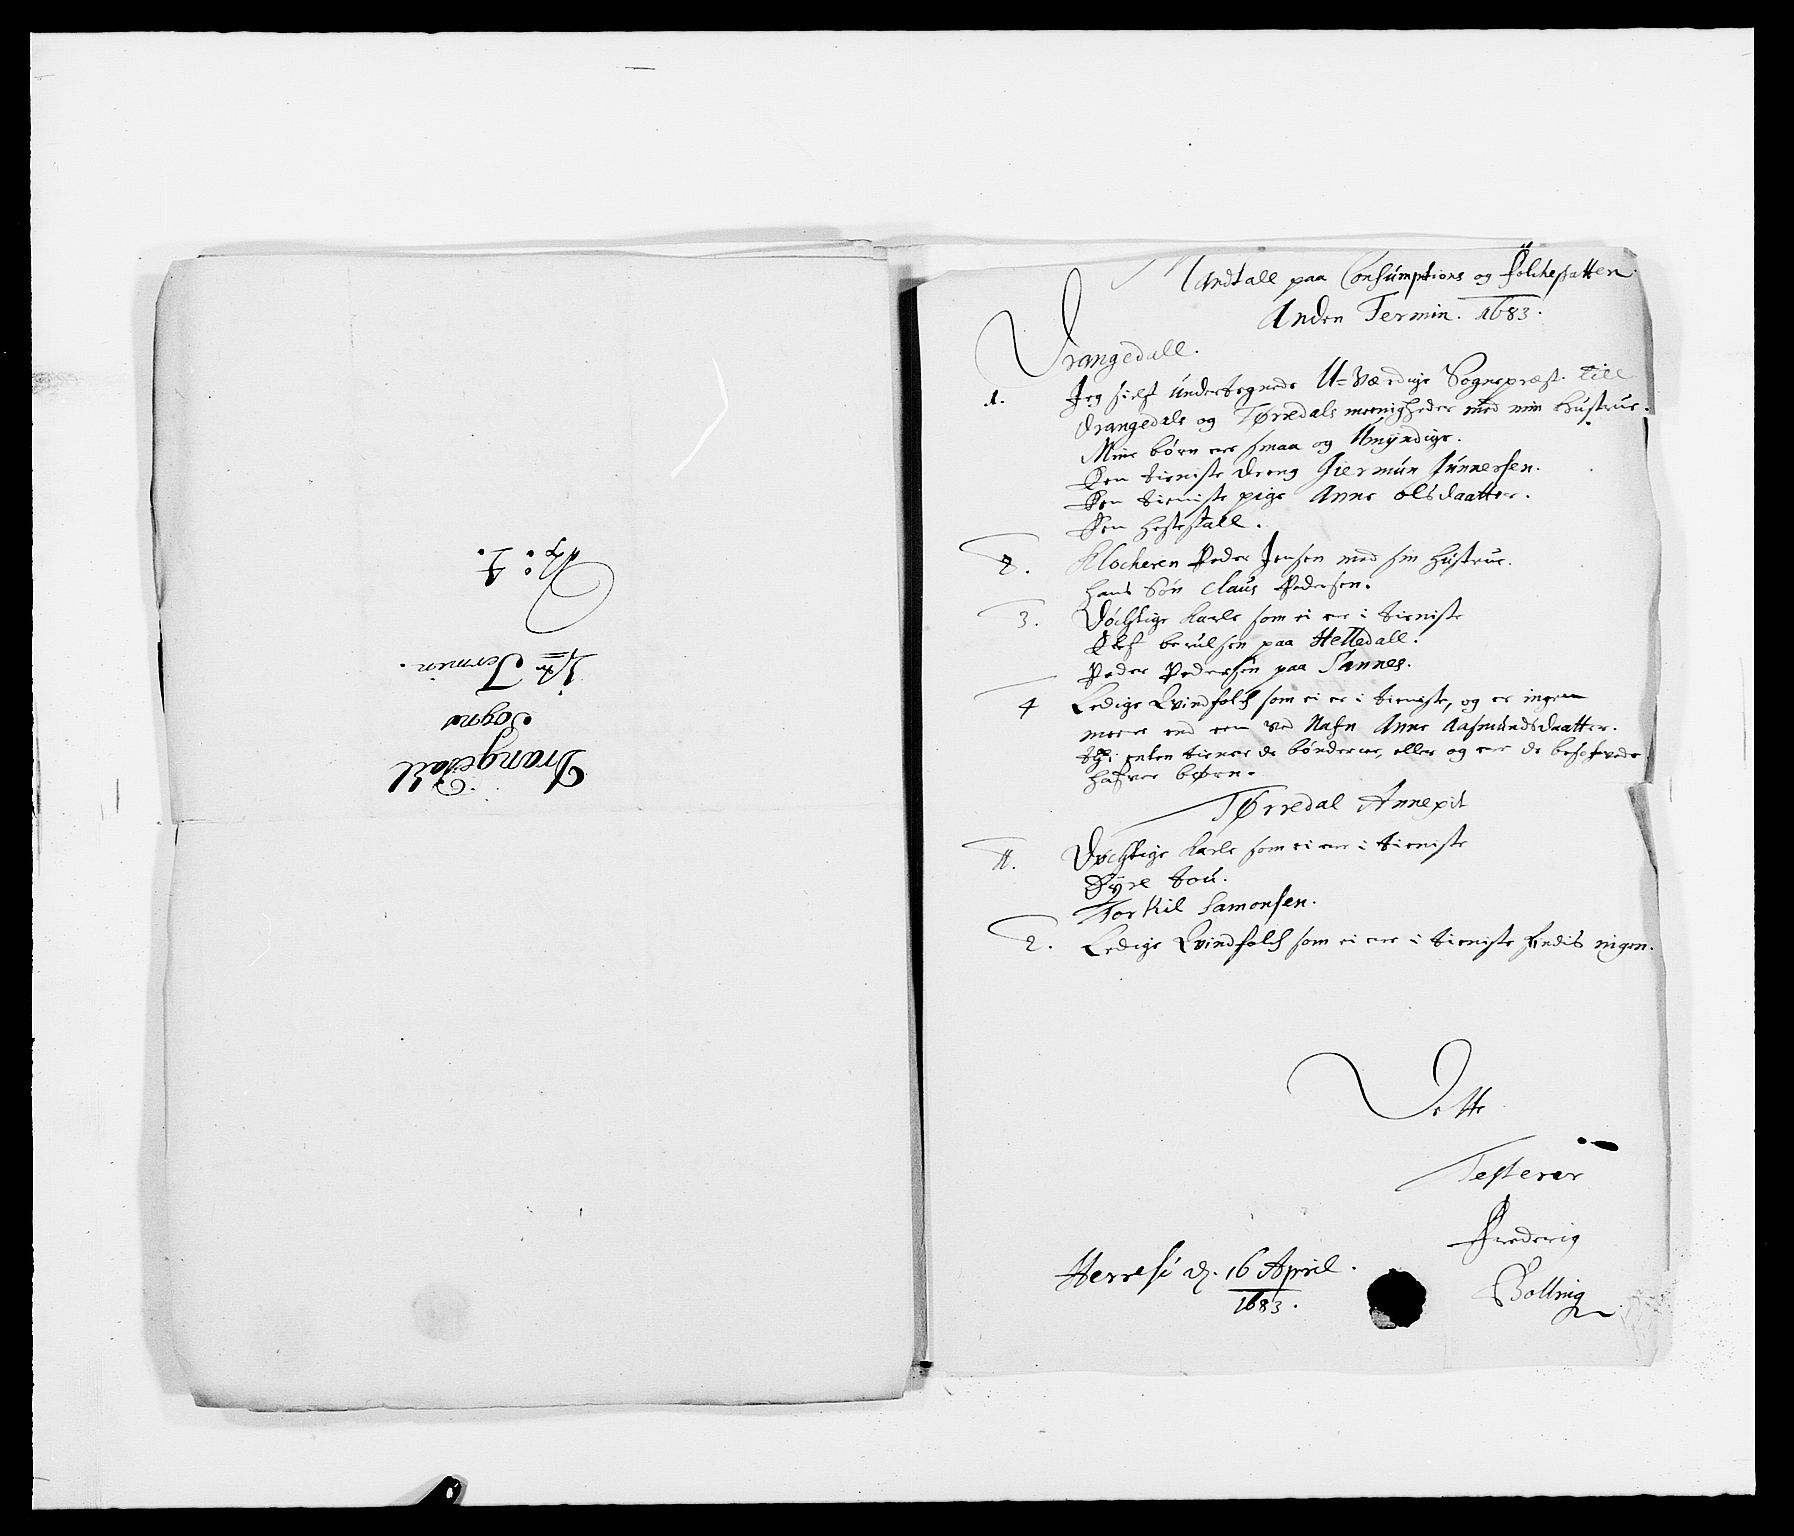 Drangedall
Sogne
1ste Termin.
No: 4.
Mandtall paa Consumptions og folcheskatten
Anden Termin. 1683.
Drangedall.
1. Jeg sielf undertegnede U-Værdige Sognepræst. till
Drangedals og Tørredals meenigheder med min hustrue.
Mine børn ere smaa og Umyndige.
Een tieniste dreng Gunnersen.
Een tieniste pige Anne olsdaatter.
Een hestestall.
2. Klocheren Peder Jensen med sin hustrue.
hans Søn Claus Pedersen.
3. Döchtige karle som ei ere i tieniste
Olef paa Helledall.
Peder Pedersen paa Sannes.
4 Ledige Qvindfolch som ei er i tieniste, og er ingen
meere end een ved Nafn Anne Aasmundsdaatter.
thi enten tiener de bønderne, eller og ere de besofvede
hafver børn.
Tørredal Annexit
1. Döchtige karle som ei ere i tieniste
Torkil Samonsen.
2. Ledige Qvindfolch som ei ere i tieniste findis ingen.
Dette
Testerer
Frederig
Bolling
Herresi d. 16 April.
1683.